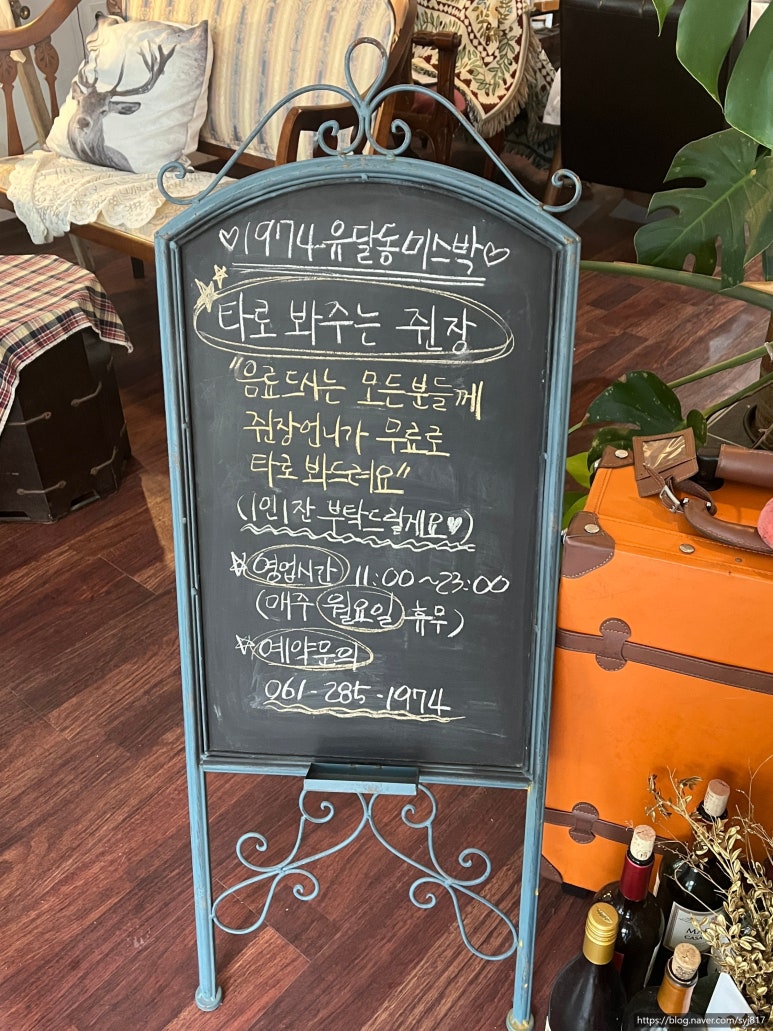 ♡1974유달동미스박♡
타로 봐주는 쥔장
"음료드시는 모든분들께
쥔장언니가 무료로
타로 봐드려요"
(1인1잔 부탁드릴게요♥)
☆영업시간 11:00~23:00
(매주 월요일 휴무)
☆예약문의
061-285-1974
https://blog.naver.com/syj817